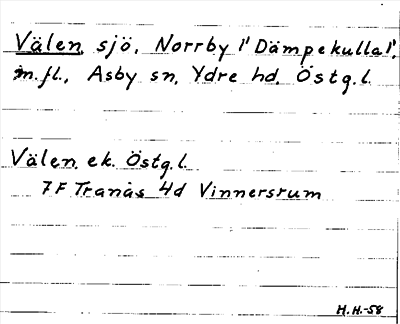 Välen, sjö, Norrby l' Dämpekulla l',
m.fl., Asby sn, Ydre hd, Östg.l.
Välen. ek. Östg.l.
7F Tranås 4d Vinnersrum
H.H.-58